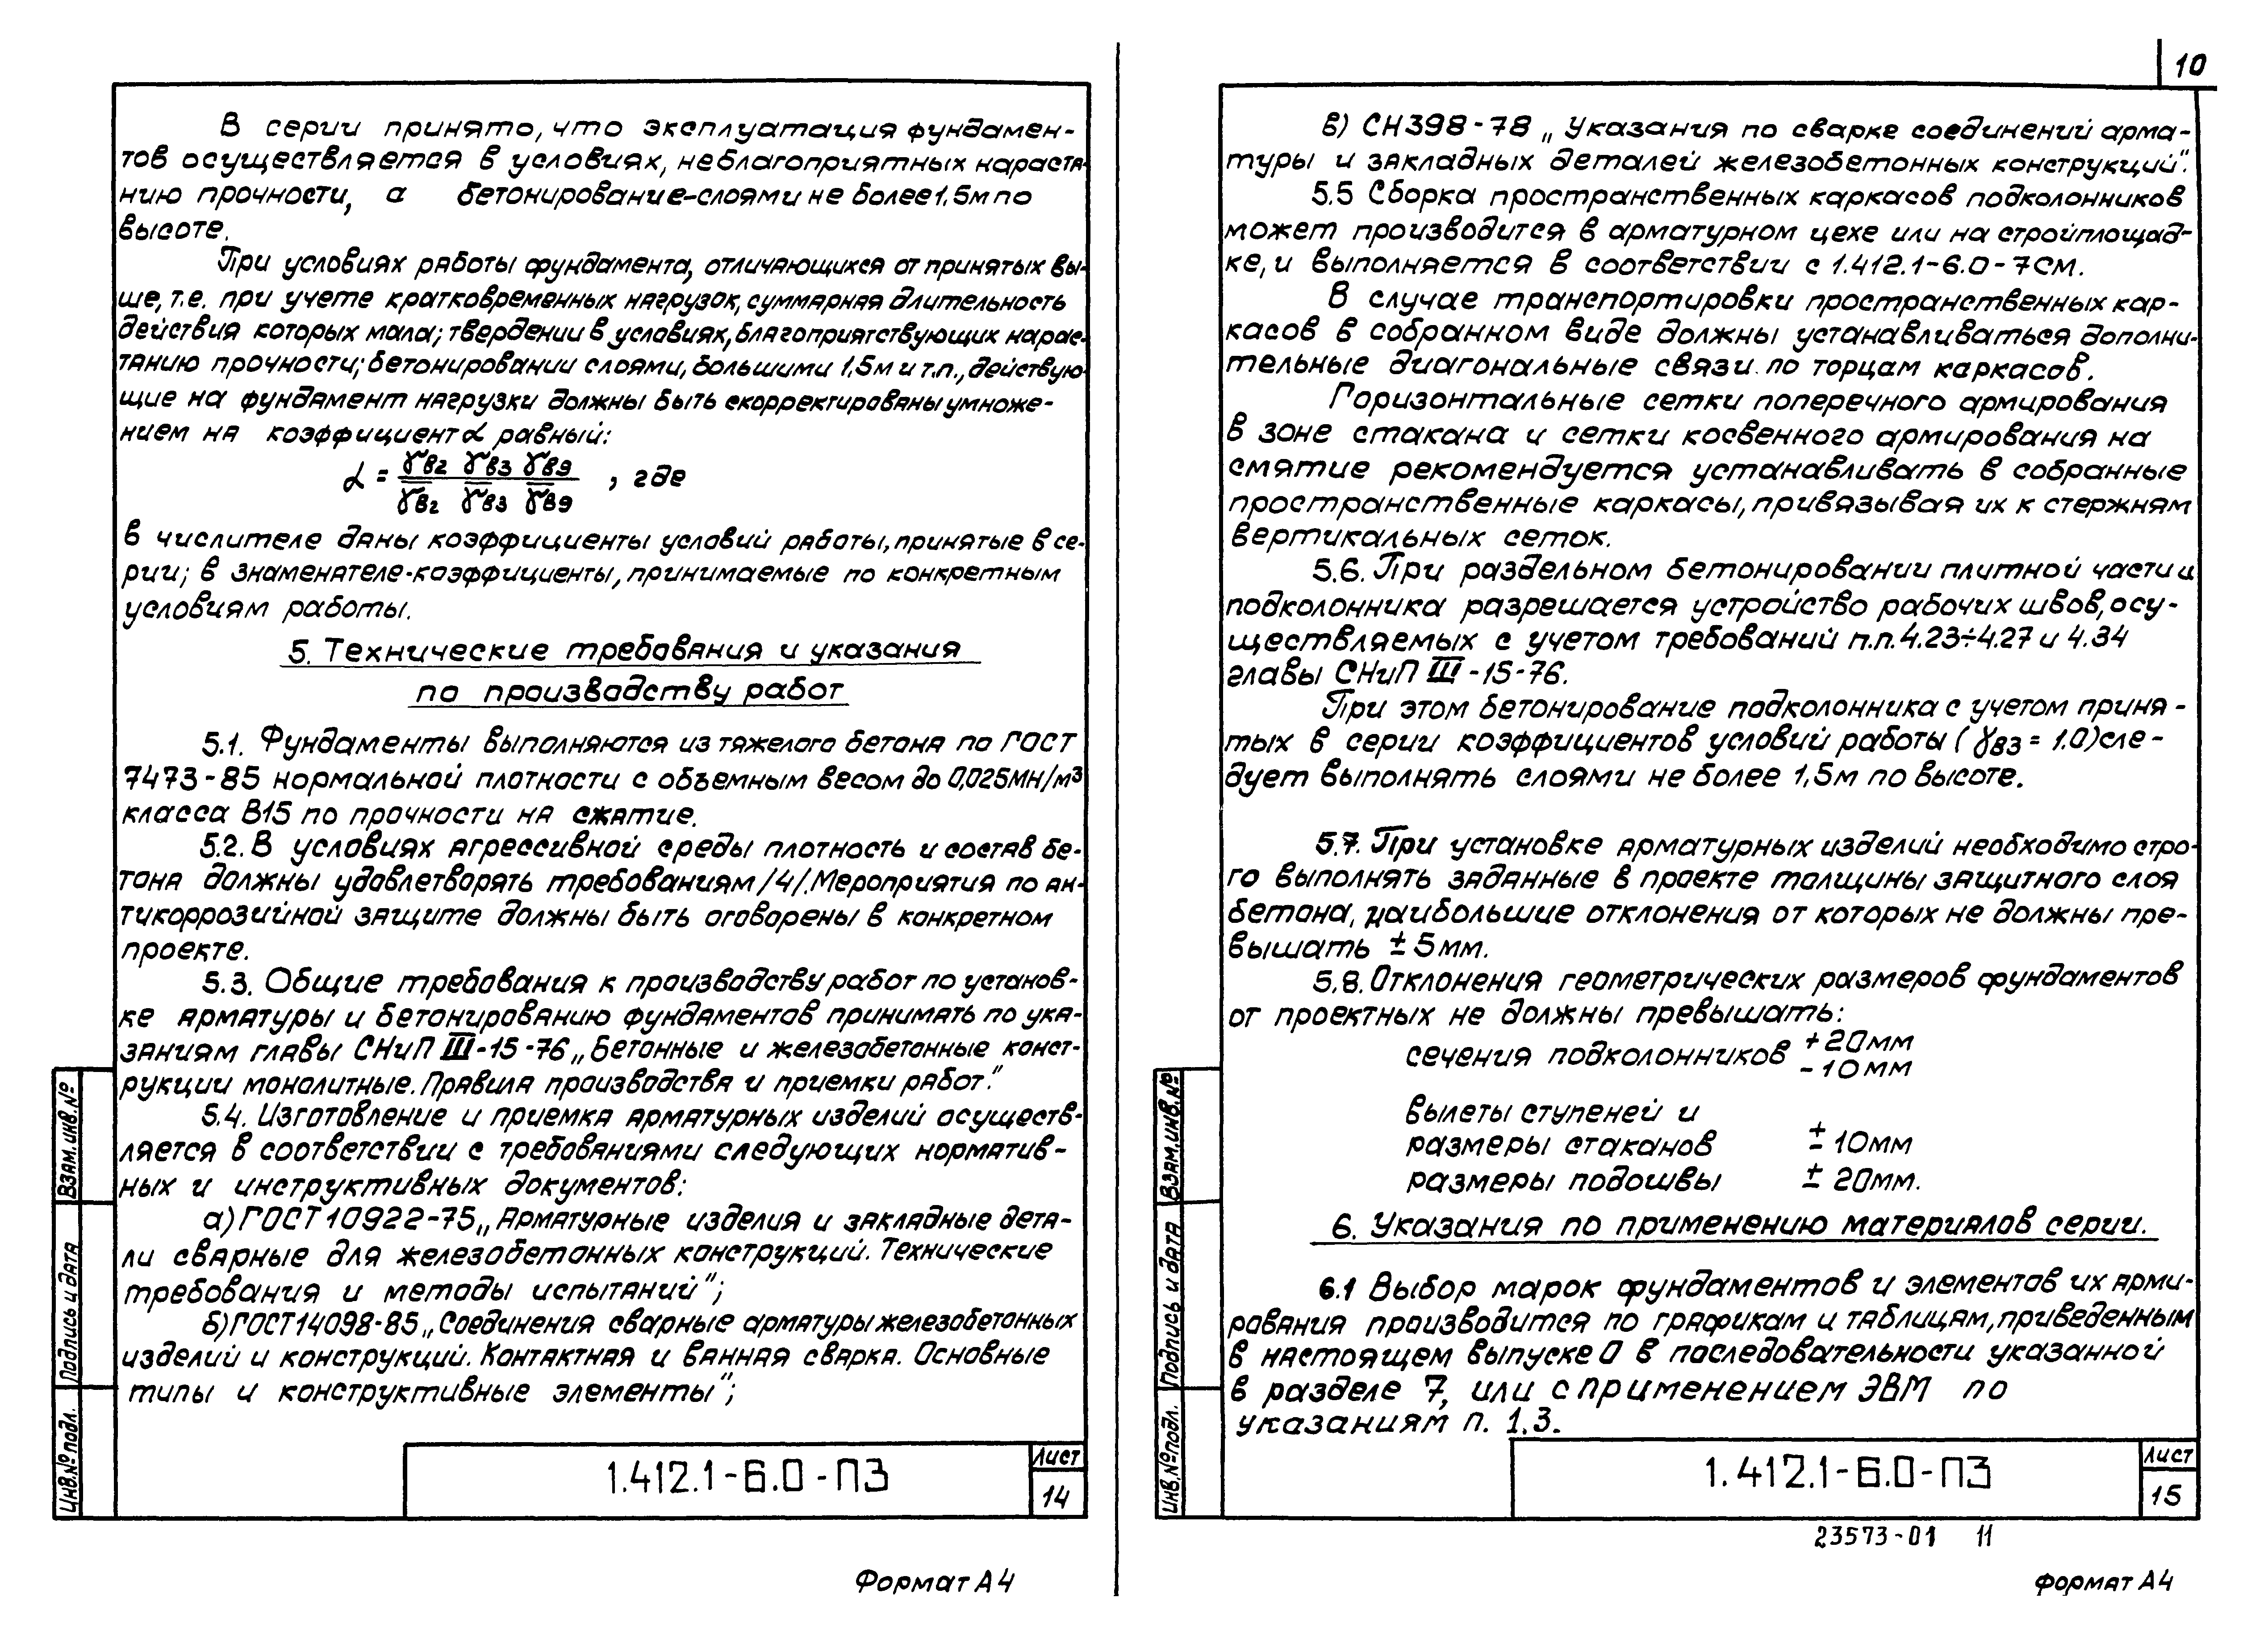 В серии принято, что эксплуатация фундамен-
тов осуществляется в условиях, неблагоприятных нараста-
нию прочности, а бетонирование-слоями не более 1,5м по
высоте.
При условиях работы фундамента, отличающихся от принятых вы-
ше, т.е. при учете кратковременных нагрузок, суммарная длительность
действия которых мала; твердении в условиях, благоприятствующих нарас-
танию прочности; бетонировании слоями, большими 1,5м и т.п., действую-
щие на фундамент нагрузки должны быть скорректированы умноже-
нием на коэффициент α равный:
α = (γв2 γв3 γв9) / (γ̄в2 γ̄в3 γ̄в9) , где
в числителе даны коэффициенты условий работы, принятые в се-
рии; в знаменателе-коэффициенты, принимаемые по конкретным
условиям работы.
5. Технические требования и указания
по производству работ
5.1. Фундаменты выполняются из тяжелого бетона по ГОСТ
7473-85 нормальной плотности с объемным весом до 0,025мн/м³
класса В15 по прочности на сжатие.
5.2. В условиях агрессивной среды плотность и состав бе-
тона должны удовлетворять требованиям /4/. Мероприятия по ан-
тикоррозийной защите должны быть оговорены в конкретном
проекте.
5.3. Общие требования к производству работ по установ-
ке арматуры и бетонированию фундаментов принимать по ука-
заниям главы СНиП III-15-76 „Бетонные и железобетонные конст-
рукции монолитные. Правила производства и приемки работ."
5.4. Изготовление и приемка арматурных изделий осуществ-
ляется в соответствии с требованиями следующих норматив-
ных и инструктивных документов:
а) ГОСТ 10922-75 „Арматурные изделия и закладные дета-
ли сварные для железобетонных конструкций. Технические
требования и методы испытаний";
б) ГОСТ 14098-85 „Соединения сварные арматуры железобетонных
изделий и конструкций. Контактная и ванная сварка. Основные
типы и конструктивные элементы";
Взам. инв. №
Подпись и дата
Инв. № подл.
1.412.1-6.0-ПЗ
Лист
14
Формат А4
10
в) СН398-78 „Указания по сварке соединений арма-
туры и закладных деталей железобетонных конструкций".
5.5 Сборка пространственных каркасов подколонников
может производится в арматурном цехе или на стройплощад-
ке, и выполняется в соответствии с 1.412.1-6.0-7СМ.
В случае транспортировки пространственных кар-
касов в собранном виде должны устанавливаться дополни-
тельные диагональные связи по торцам каркасов.
Горизонтальные сетки поперечного армирования
в зоне стакана и сетки косвенного армирования на
смятие рекомендуется устанавливать в собранные
пространственные каркасы, привязывая их к стержням
вертикальных сеток.
5.6. При раздельном бетонировании плитной части и
подколонника разрешается устройство рабочих швов, осу-
ществляемых с учетом требований п.п. 4.23÷4.27 и 4.34
главы СНиП III-15-76.
При этом бетонирование подколонника с учетом приня-
тых в серии коэффициентов условий работы (γв3 = 1.0) сле-
дует выполнять слоями не более 1,5м по высоте.
5.7. При установке арматурных изделий необходимо стро-
го выполнять заданные в проекте толщины защитного слоя
бетона, наибольшие отклонения от которых не должны пре-
вышать ± 5мм.
5.8. Отклонения геометрических размеров фундаментов
от проектных не должны превышать:
сечения подколонников +20мм
-10мм
вылеты ступеней и
размеры стаканов ± 10мм
размеры подошвы ± 20мм.
6. Указания по применению материалов серии.
6.1 Выбор марок фундаментов и элементов их арми-
рования производится по графикам и таблицам, приведенным
в настоящем выпуске 0 в последовательности указанной
в разделе 7, или с применением ЭВМ по
указаниям п. 1.3.
Взам. инв. №
Подпись и дата
Инв. № подл.
1.412.1-6.0-ПЗ
Лист
15
23573-01 11
Формат А4